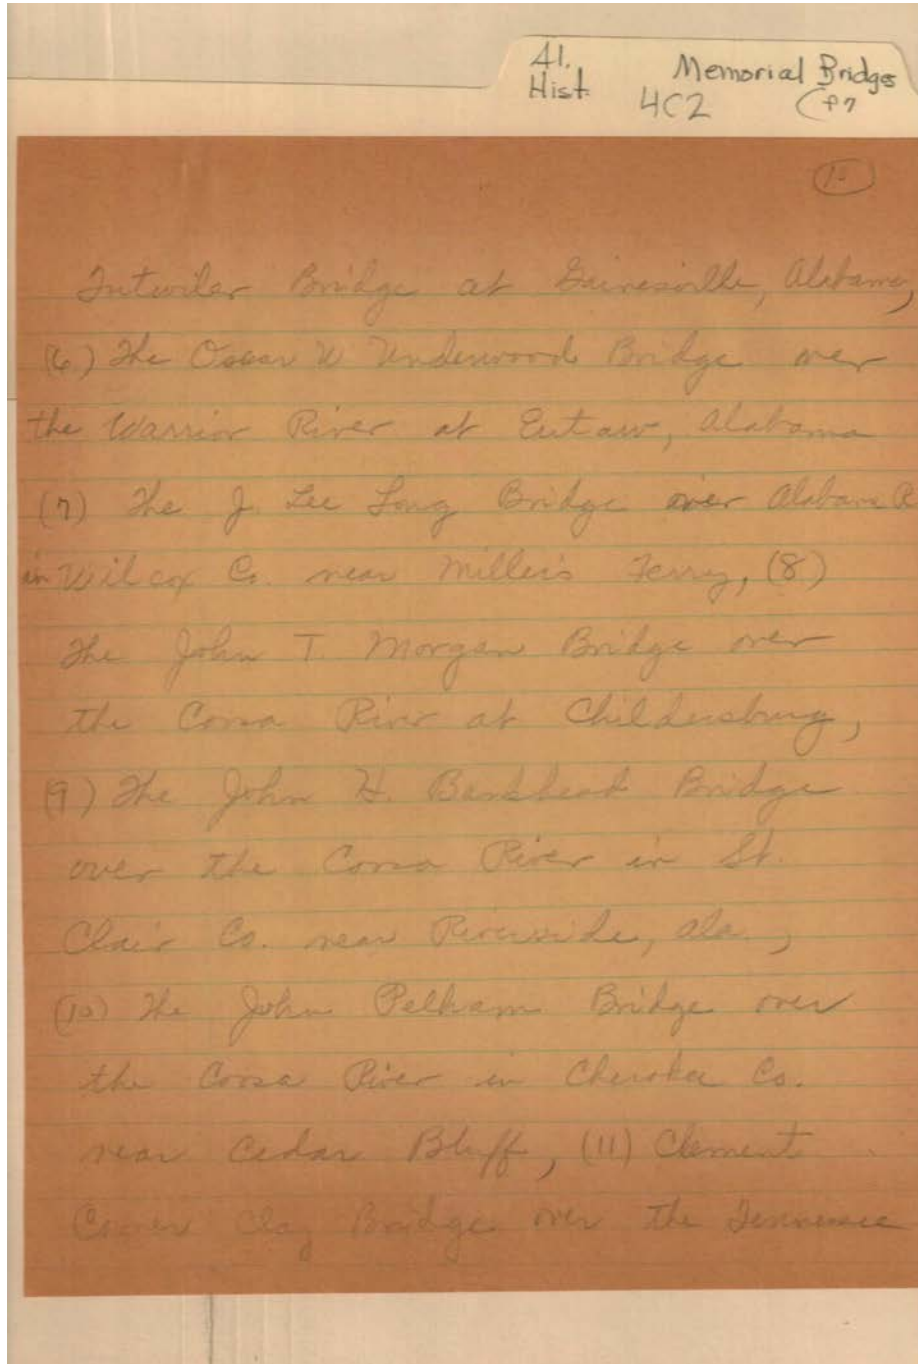 Al. Memorial Bridges
Hist. 4C2 (P7
Tutwiler Bridge at Gainesville, Alabama,
(6) The Oscar W Underwood Bridge over
the Warrior River at Eutaw, Alabama
(7) The J. Lee Long Bridge over Alabama R
in Wilcox Co. near Miller's Ferry, (8)
The John T. Morgan Bridge over
the Coosa River at Childersburg,
(9) The John H. Bankhead Bridge
over the Coosa River in St.
Clair Co. near Riverside, Ala.,
(10) The John Pelham Bridge over
the Coosa River in Cherokee Co.
near Cedar Bluff, (11) Clement
Comer Clay Bridge over the Tennessee